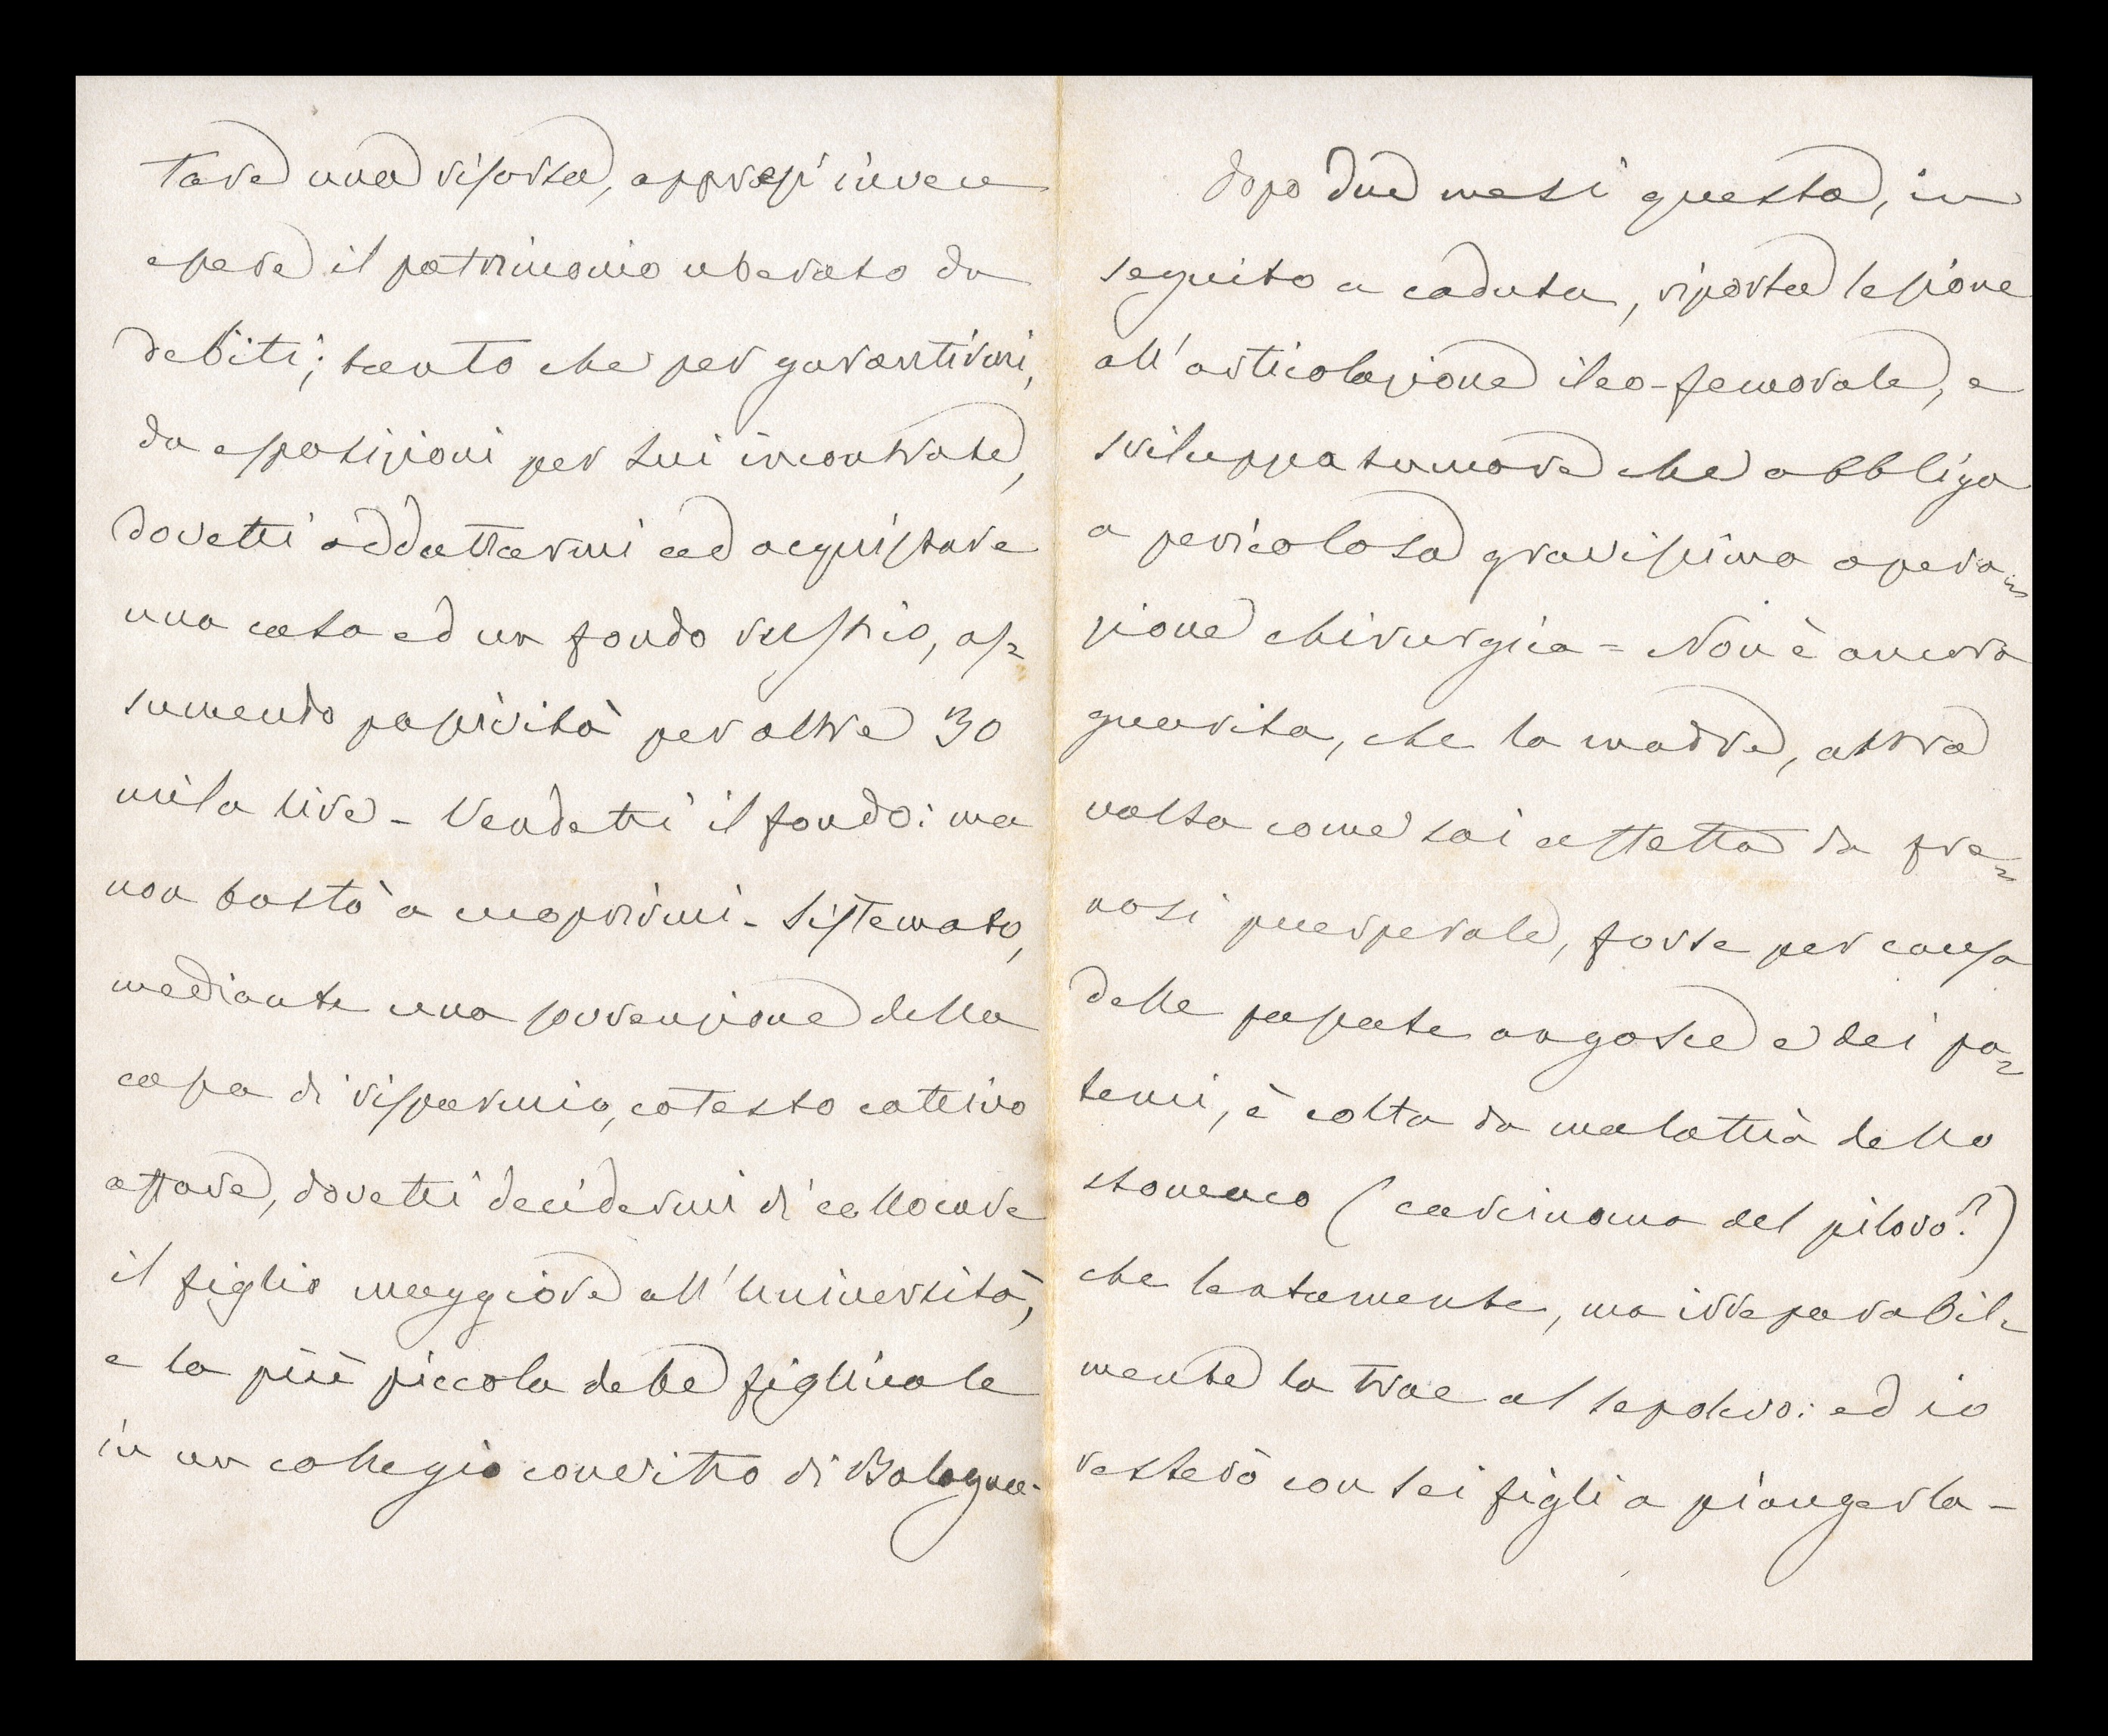 tare una risorsa, appresi invece
essere il patrimonio oberato da
debiti; tanto che per garantirmi,
da esposizioni per lui incontrate,
dovetti addattarmi ad acquistare
una casa ed un fondo rustico, as=
sumendo passività per oltre 30
mila lire - Vendetti il fondo: ma
non bastò a coprirmi - Sistemato,
mediante una sovvenzione della
cassa di risparmio, cotesto cattivo
affare, dovetti decidermi di collocare
il figlio maggiore all'Università,
e la più piccola delle figliuole
in un collegio convitto di Bologna -
Dopo due mesi questa, in
seguito a caduta, riporta lesione
all'articolazione ileo-femorale, e
sviluppa tumore che obbliga
a pericolosa gravissima opera=
zione chirurgica = Non è ancora
guarita, che la madre, altra
volta come sai affetta da fre=
nosi puerperale, forse per causa
delle passate angoscie e dei pa=
temi, è colta da malattia dello
stomaco (carcinoma del piloro?)
che lentamente, ma irreparabil=
mente la trae al sepolcro: ed io
resterò con sei figli a piangerla -